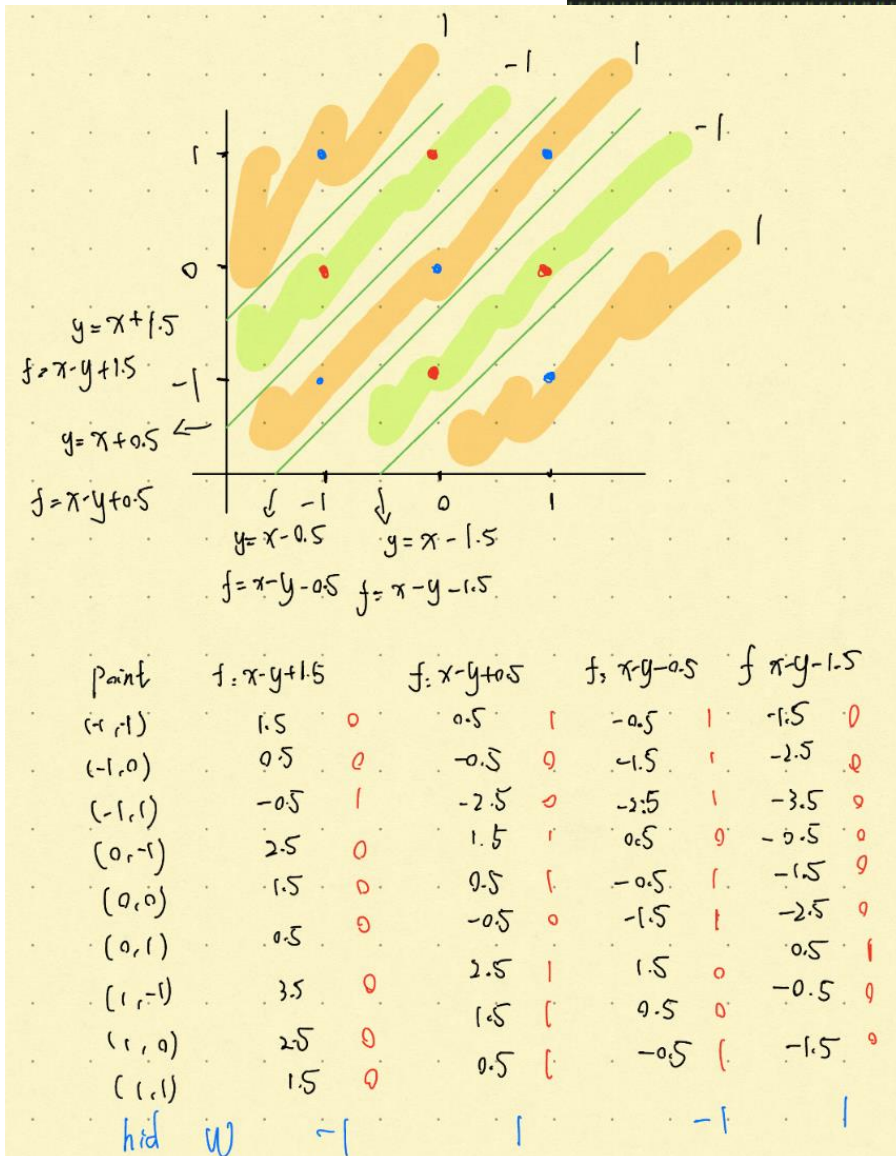 1
-1
1
-1
1
1
0
-1
y=x+1.5
f=x-y+1.5
y=x+0.5
f=x-y+0.5
-1 0 1
y=x-0.5 y=x-1.5
f=x-y-0.5 f=x-y-1.5
point f: x-y+1.5 f: x-y+0.5 f: x-y-0.5 f x-y-1.5
(-1,-1) 1.5 0 0.5 1 -0.5 1 -1.5 0
(-1,0) 0.5 0 -0.5 0 -1.5 1 -2.5 0
(-1,1) -0.5 1 -2.5 0 -2.5 1 -3.5 0
(0,-1) 2.5 0 1.5 1 0.5 0 -0.5 0
(0,0) 1.5 0 0.5 1 -0.5 1 -1.5 0
(0,1) 0.5 0 -0.5 0 -1.5 1 -2.5 0
(1,-1) 3.5 0 2.5 1 1.5 0 0.5 1
(1,0) 2.5 0 1.5 1 0.5 0 -0.5 0
(1,1) 1.5 0 0.5 1 -0.5 1 -1.5 0
hid W -1 1 -1 1